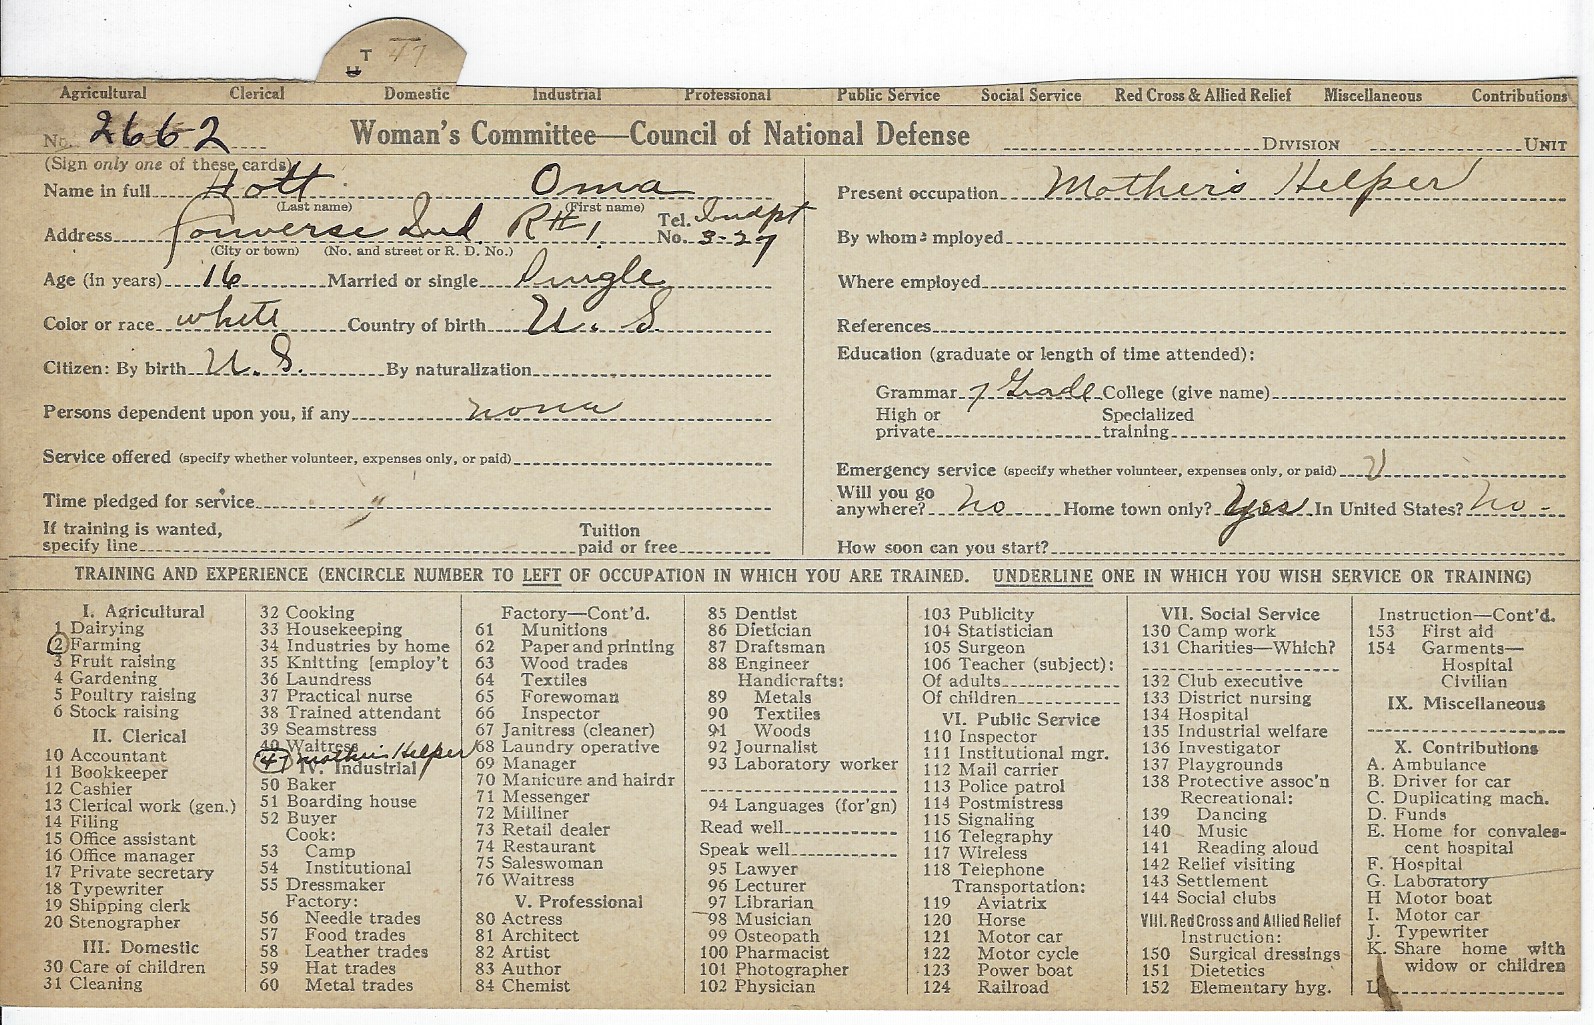 T 47
Agricultural Clerical Domestic Industrial Professional Public Service Social Service Red Cross & Allied Relief Miscellaneous Contributions
No. 2662 Woman's Committee—Council of National Defense DIVISION UNIT
(Sign only one of these cards)
Name in full Hott Oma
(Last name) (First name)
Address Converse Ind. R#1. Tel. No. Indpt 3-27
(City or town) (No. and street or R. D. No.)
Age (in years) 16 Married or single Single
Color or race white Country of birth U. S.
Citizen: By birth U. S. By naturalization
Persons dependent upon you, if any none
Service offered (specify whether volunteer, expenses only, or paid)
Time pledged for service "
If training is wanted,
specify line Tuition paid or free
Present occupation Mother's Helper
By whom employed
Where employed
References
Education (graduate or length of time attended):
Grammar 7 Grade College (give name)
High or private Specialized training
Emergency service (specify whether volunteer, expenses only, or paid) V
Will you go anywhere? no Home town only? Yes In United States? no -
How soon can you start?
TRAINING AND EXPERIENCE (ENCIRCLE NUMBER TO LEFT OF OCCUPATION IN WHICH YOU ARE TRAINED. UNDERLINE ONE IN WHICH YOU WISH SERVICE OR TRAINING)
I. Agricultural
1 Dairying
2 Farming
3 Fruit raising
4 Gardening
5 Poultry raising
6 Stock raising
II. Clerical
10 Accountant
11 Bookkeeper
12 Cashier
13 Clerical work (gen.)
14 Filing
15 Office assistant
16 Office manager
17 Private secretary
18 Typewriter
19 Shipping clerk
20 Stenographer
III. Domestic
30 Care of children
31 Cleaning
32 Cooking
33 Housekeeping
34 Industries by home
35 Knitting [employ't
36 Laundress
37 Practical nurse
38 Trained attendant
39 Seamstress
40 Waitress
47 Mothers Helper
IV. Industrial
50 Baker
51 Boarding house
52 Buyer
Cook:
53 Camp
54 Institutional
55 Dressmaker
Factory:
56 Needle trades
57 Food trades
58 Leather trades
59 Hat trades
60 Metal trades
Factory—Cont'd.
61 Munitions
62 Paper and printing
63 Wood trades
64 Textiles
65 Forewoman
66 Inspector
67 Janitress (cleaner)
68 Laundry operative
69 Manager
70 Manicure and hairdr
71 Messenger
72 Milliner
73 Retail dealer
74 Restaurant
75 Saleswoman
76 Waitress
V. Professional
80 Actress
81 Architect
82 Artist
83 Author
84 Chemist
85 Dentist
86 Dietician
87 Draftsman
88 Engineer
Handicrafts:
89 Metals
90 Textiles
91 Woods
92 Journalist
93 Laboratory worker
94 Languages (for'gn)
Read well
Speak well
95 Lawyer
96 Lecturer
97 Librarian
98 Musician
99 Osteopath
100 Pharmacist
101 Photographer
102 Physician
103 Publicity
104 Statistician
105 Surgeon
106 Teacher (subject):
Of adults
Of children
VI. Public Service
110 Inspector
111 Institutional mgr.
112 Mail carrier
113 Police patrol
114 Postmistress
115 Signaling
116 Telegraphy
117 Wireless
118 Telephone
Transportation:
119 Aviatrix
120 Horse
121 Motor car
122 Motor cycle
123 Power boat
124 Railroad
VII. Social Service
130 Camp work
131 Charities—Which?
132 Club executive
133 District nursing
134 Hospital
135 Industrial welfare
136 Investigator
137 Playgrounds
138 Protective assoc'n
Recreational:
139 Dancing
140 Music
141 Reading aloud
142 Relief visiting
143 Settlement
144 Social clubs
VIII. Red Cross and Allied Relief
Instruction:
150 Surgical dressings
151 Dietetics
152 Elementary hyg.
Instruction—Cont'd.
153 First aid
154 Garments—
Hospital
Civilian
IX. Miscellaneous
X. Contributions
A. Ambulance
B. Driver for car
C. Duplicating mach.
D. Funds
E. Home for convales-
cent hospital
F. Hospital
G. Laboratory
H Motor boat
I. Motor car
J. Typewriter
K. Share home with
widow or children
L